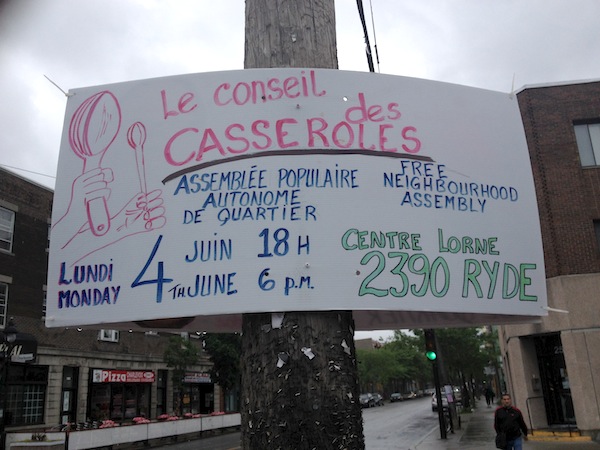 Le conseil
des
CASSEROLES
ASSEMBLÉE POPULAIRE
AUTONOME
DE QUARTIER
FREE
NEIGHBOURHOOD
ASSEMBLY
LUNDI
MONDAY
4 JUIN 18 H
TH JUNE 6 P.M.
CENTRE LORNE
2390 RYDE
Pizza